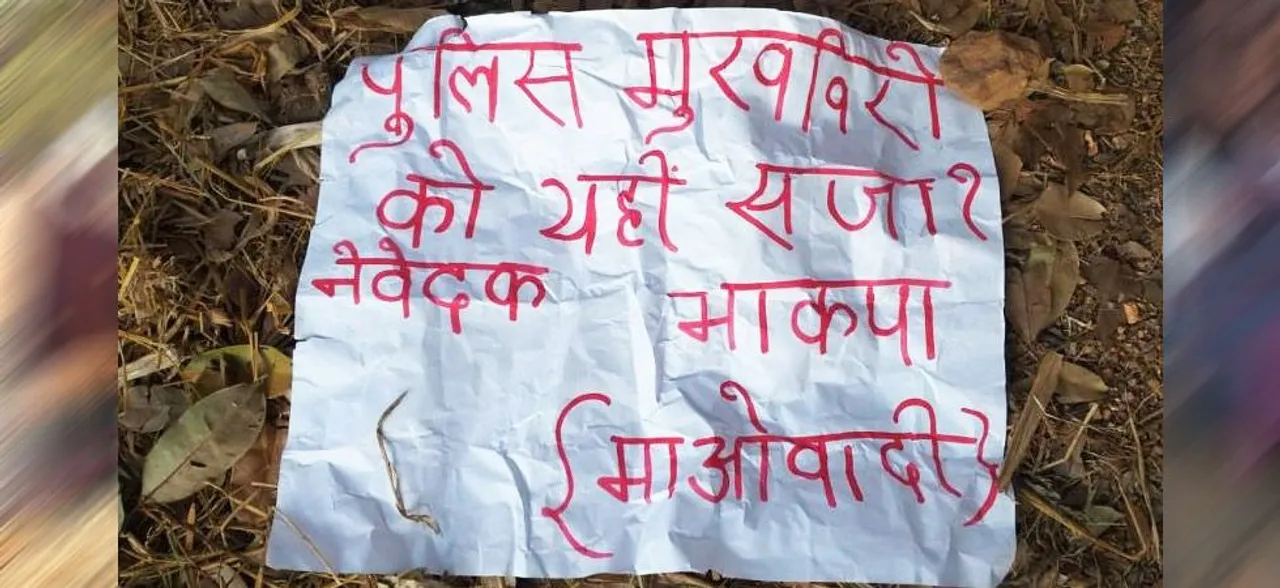 पुलिस मुरवविरो
को यहीं सजा?
नेवेदक भाकपा
{माओवादी}